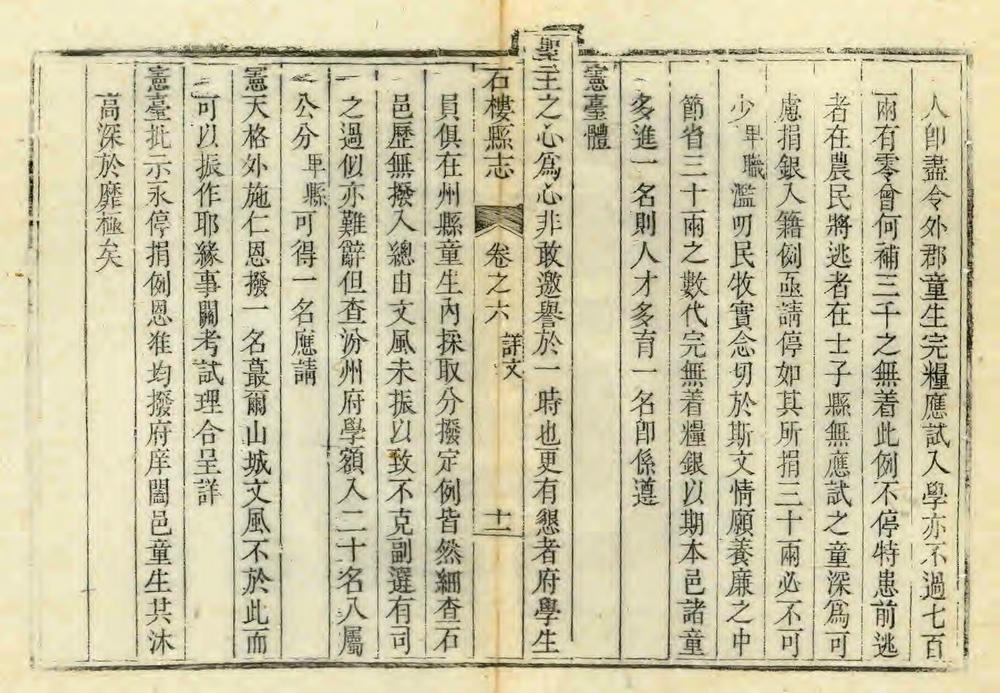 人卽盡令外郡童生完糧應試入學亦不過七百
兩有零曾何補三千之無着此例不停特患前逃
者在農民將逃者在士子縣無應試之童深爲可
慮捐銀入籍例亟請停如其所捐三十兩必不可
少卑職濫叨民牧實念切於斯文情願養廉之中
節省三十兩之數代完無着糧銀以期本邑諸童
多進一名則人才多育一名卽係遵
憲臺體
聖主之心爲心非敢邀譽於一時也更有懇者府學生
石樓縣志 卷之六 詳文 十一
員俱在州縣童生內採取分撥定例皆然細查石
邑歷無撥入總由文風未振以致不克副選有司
之過似亦難辭但查汾州府學額入二十名八屬
公分卑縣可得一名應請
憲天格外施仁恩撥一名蕞爾山城文風不於此而
可以振作耶緣事關考試理合呈詳
憲臺批示永停捐例恩准均撥府庠闔邑童生共沐
高深於靡極矣